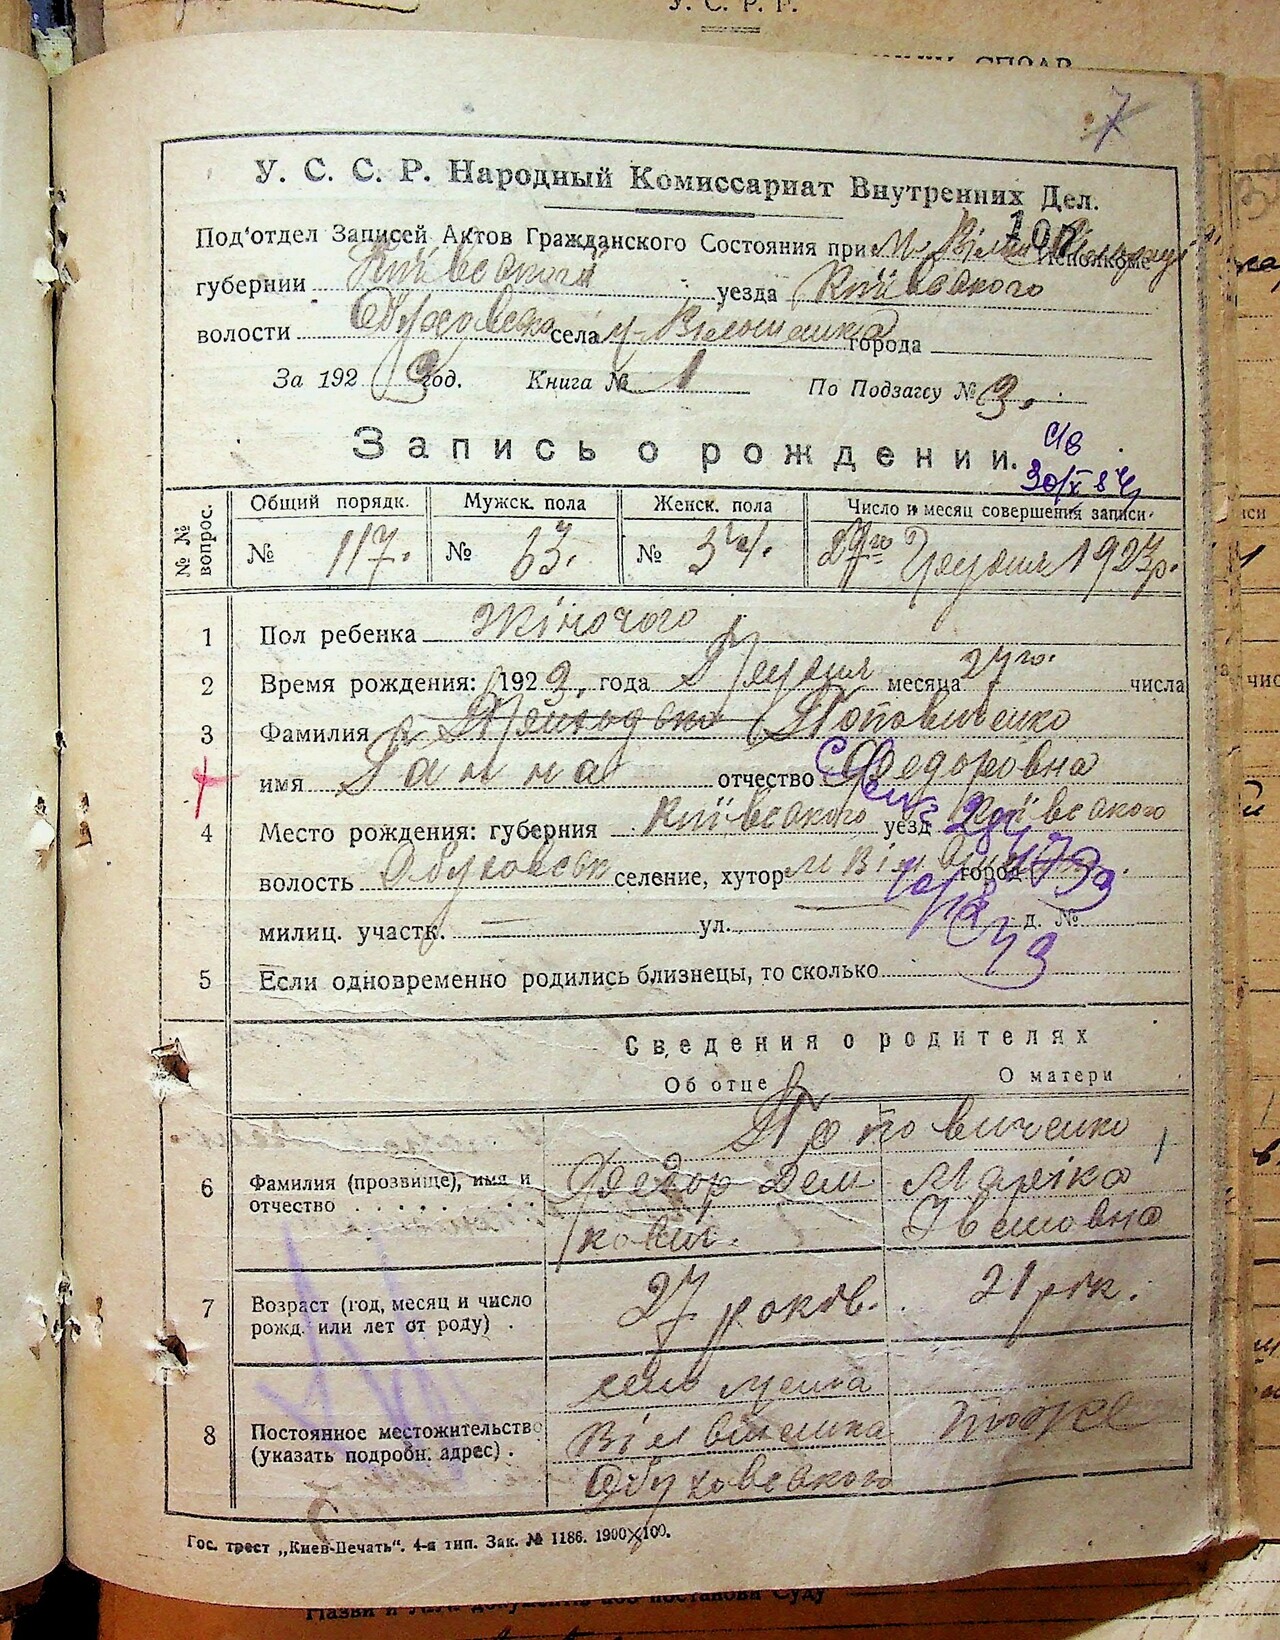 У. С. Р. Р.
7
У. С. С. Р. Народный Комиссариат Внутренних Дел.
Под'отдел Записей Актов Гражданского Состояния при Исполкоме
100
губернии Київської уезда Київського
волости Обуховсько села города
За 1923 год. Книга № 1 По Подзагсу № 3.
Запись о рождении.
30/X 84
№ № вопрос. Общий порядк. Мужск. пола Женск. пола Число и месяц совершения записи.
№ 117. № 63. № 54. 29го Грудня 1923 р.
1 Пол ребенка Жіночого
2 Время рождения: 1923, года Грудня месяца 27го. числа
3 Фамилия Поповиченко
имя Ганна отчество Федоровна
4 Место рождения: губерния Київського уезд Київського
волость Обуховськ селение, хутор город
милиц. участк. — ул. — д. №
5 Если одновременно родились близнецы, то сколько
Сведения о родителях
Об отце О матери
Поповиченко
6 Фамилия (прозвище), имя и отчество Федор Дем Марійка
Івановна
7 Возраст (год, месяц и число рожд. или лет от роду) . 27 років. 21 рік.
8 Постоянное местожительство (указать подробн. адрес) . тоже
Обуховського
Гос. трест „Киев-Печать". 4-я тип. Зак. № 1186. 1900×100.